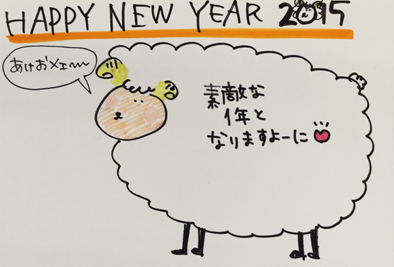 HAPPY NEW YEAR 2015
あけおメェ〜
素敵な
1年と
なりますよーに